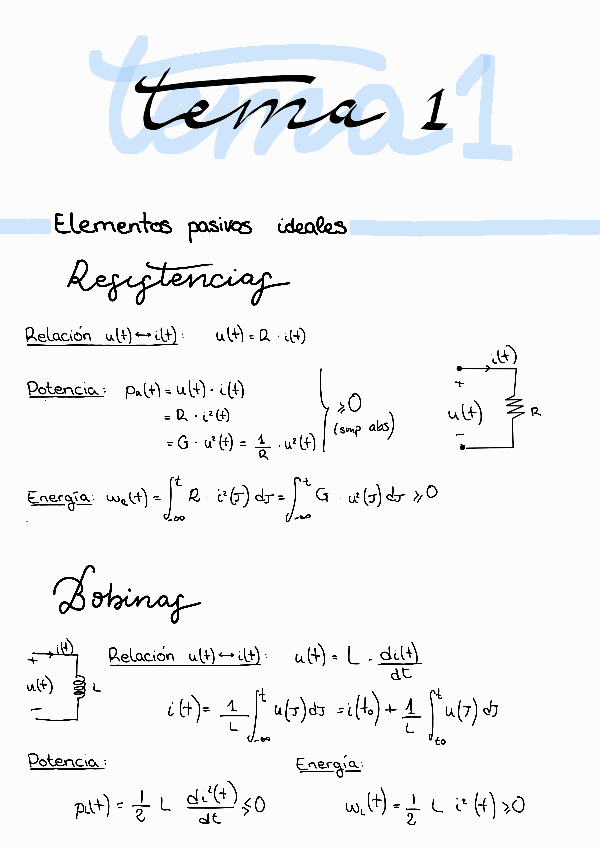 tema 1
Elementos pasivos ideales
Resistencias
Relación u(t)↔i(t): u(t) = R · i(t)
i(t)
+
u(t)
R
−
Potencia: p_R(t) = u(t) · i(t)
= R · i²(t)
= G · u²(t) = 1/R · u²(t)
≥0
(smp abs)
Energía: w_R(t) = ∫_{-∞}^{t} R i²(J) dJ = ∫_{-∞}^{t} G · u²(J) dJ ≥ 0
Bobinas
i(t)
+
u(t)
L
−
Relación u(t)↔i(t): u(t) = L · di(t)/dt
i(t) = 1/L ∫_{-∞}^{t} u(J) dJ = i(t₀) + 1/L ∫_{t0}^{t} u(J) dJ
Potencia:
p_L(t) = 1/2 L di²(t)/dt ≤0
Energía:
w_L(t) = 1/2 L i²(t) ≥0